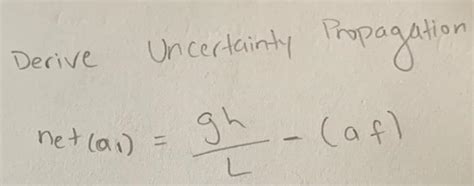 Derive Uncertainty Propagation
net(a1) = gh/L - (af)